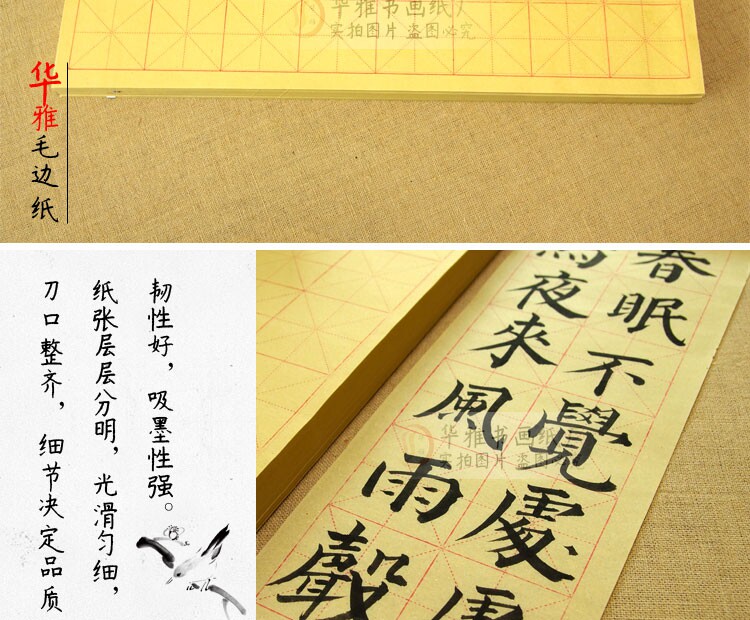 华雅书画纸人
实拍图片 盗图必究
华雅毛边纸
韧性好，吸墨性强。
纸张层层分明，光滑匀细，
刀口整齐，细节决定品质
春眠不覺處
夜來風雨聲
华雅书画纸
实拍图片 盗图